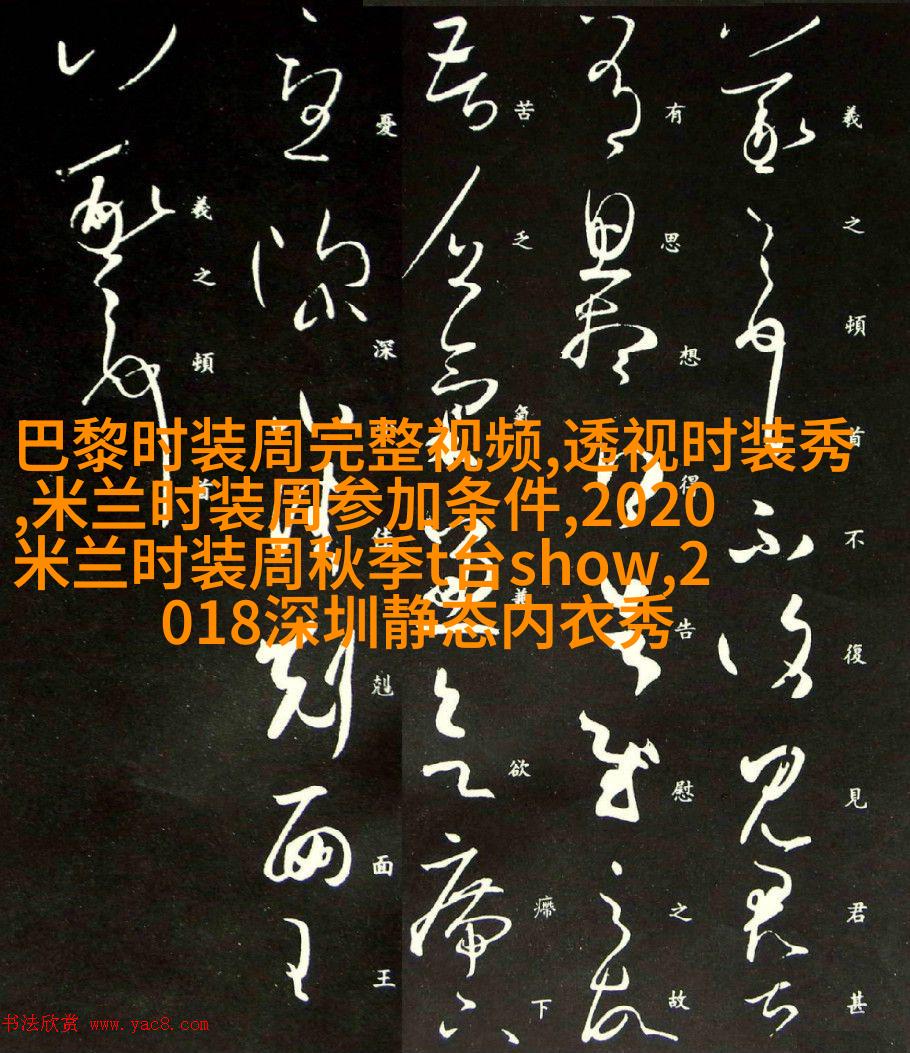 羲之頓首不復見君甚
有思想得告慰之故
苦乏氣兼欲㿃下
憂深佳剋面王
羲之頓首
巴黎时装周完整视频,透视时装秀
,米兰时装周参加条件,2020
米兰时装周秋季t台show,2
018深圳静态内衣秀
书法欣赏 www.yac8.com